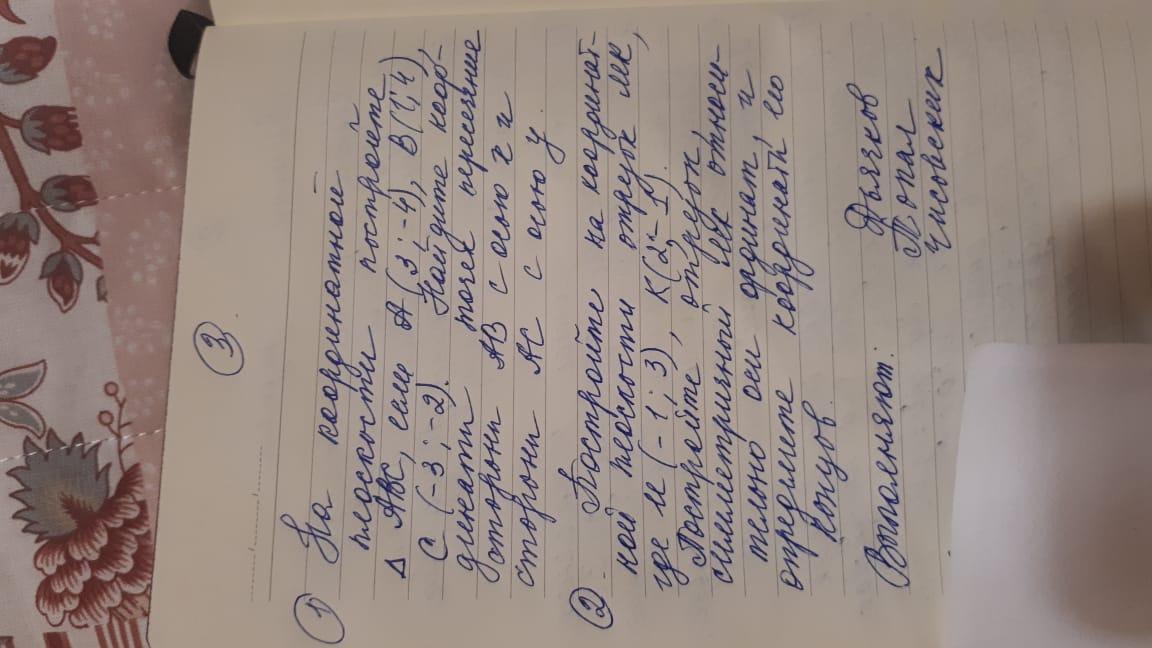 3
1) На координатной
плоскости постройте
Δ ABC, если A(3;-4), B(1;4)
C(-3;-2). Найдите коор-
динаты точек пересечение
стороны AB с осью x и
стороны AC с осью y.
2. Постройте на координат-
ной плоскости отрезок MK,
где M(-1;3), K(2;-1).
Постройте отрезок,
симметричный MK относи-
тельно оси ординат, и
определите координаты его
концов.
Выполняют: Дьячков
Попал